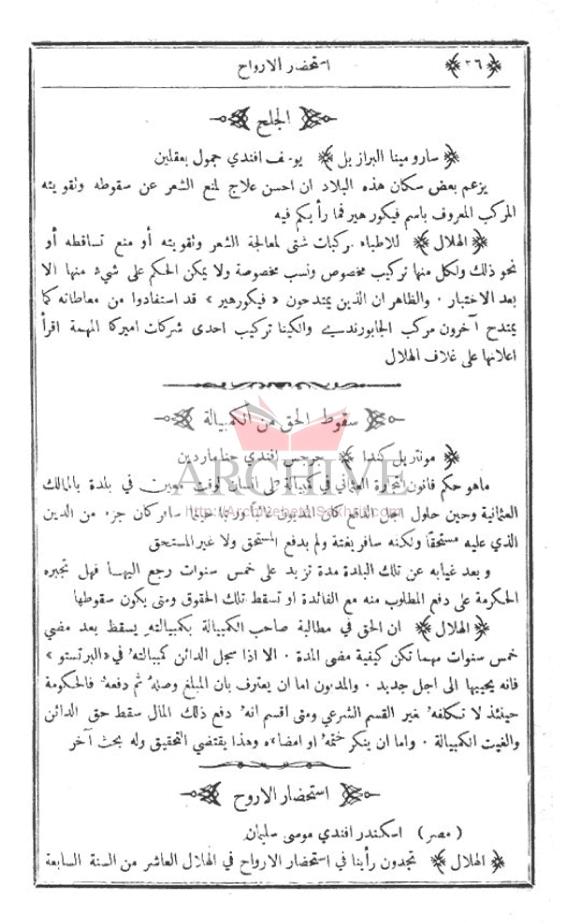 ﴿ ٣٦ ﴾ استحضار الارواح
الجلح
﴿ سارومينا البرازيل ﴾ يوسف افندي حمول بعقلين
يزعم بعض سكان هذه البلاد ان احسن علاج لمنع الشعر عن سقوطه وتقويته
المركب المعروف باسم فيكورهير فما رأيكم فيه
﴿ الهلال ﴾ للاطباء مركبات شتى لمعالجة الشعر وتقويته أو منع تساقطه أو
نحو ذلك ولكل منها تركيب مخصوص ونسب مخصوصة ولا يمكن الحكم على شيء منها الا
بعد الاختبار . والظاهر ان الذين يمتدحون « فيكورهير » قد استفادوا من معاطاته كما
يمتدح آخرون مركب الجابورندسيه والكينا تركيب احدى شركات اميركا المهمة اقرأ
اعلانها على غلاف الهلال
سقوط الحق من الكمبيالة
ARCHIVE
﴿ مونتريل كندا ﴾ جرجس افندي حنا ماردين
ما هو حكم قانون التجارة العثماني في كمبيالة على انسان لوقت معين في بلدة بالممالك
العثمانية وحين حلول اجل الدفع كان المديون غائبا وربما حينما سافر كان جزء من الدين
الذي عليه مستحقاً ولكنه سافر بغتة ولم يدفع المستحق ولا غير المستحق
وبعد غيابه عن تلك البلدة مدة تزيد على خمس سنوات رجع اليها فهل تجبره
الحكومة على دفع المطلوب منه مع الفائدة او تسقط تلك الحقوق ومتى يكون سقوطها
﴿ الهلال ﴾ ان الحق في مطالبة صاحب الكمبيالة بكمبيالته يسقط بعد مضي
خمس سنوات مهما تكن كيفية مضى المدة . الا اذا سجل الدائن كمبيالته في «البرتستو »
فانه يحييها الى اجل جديد . والمديون اما ان يعترف بان المبلغ وصله ثم دفعه فالحكومة
حينئذ لا تكلفه غير القسم الشرعي ومتى اقسم انه دفع ذلك المال سقط حق الدائن
والغيت الكمبيالة . واما ان ينكر ختمه او امضاءه وهذا يقتضي التحقيق وله بحث آخر
استحضار الاروح
( مصر ) اسكندر افندي موسى سليمان
﴿ الهلال ﴾ تجدون رأينا في استحضار الارواح في الهلال العاشر من السنة السابعة